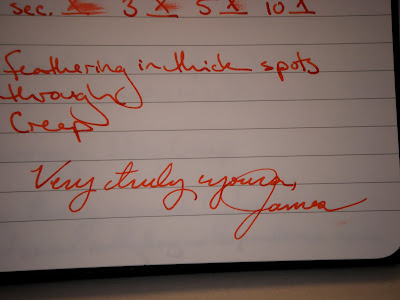 sec. X 3 X 5 X 10 1
feathering in thick spots
through
Creep
Very truly yours,
James